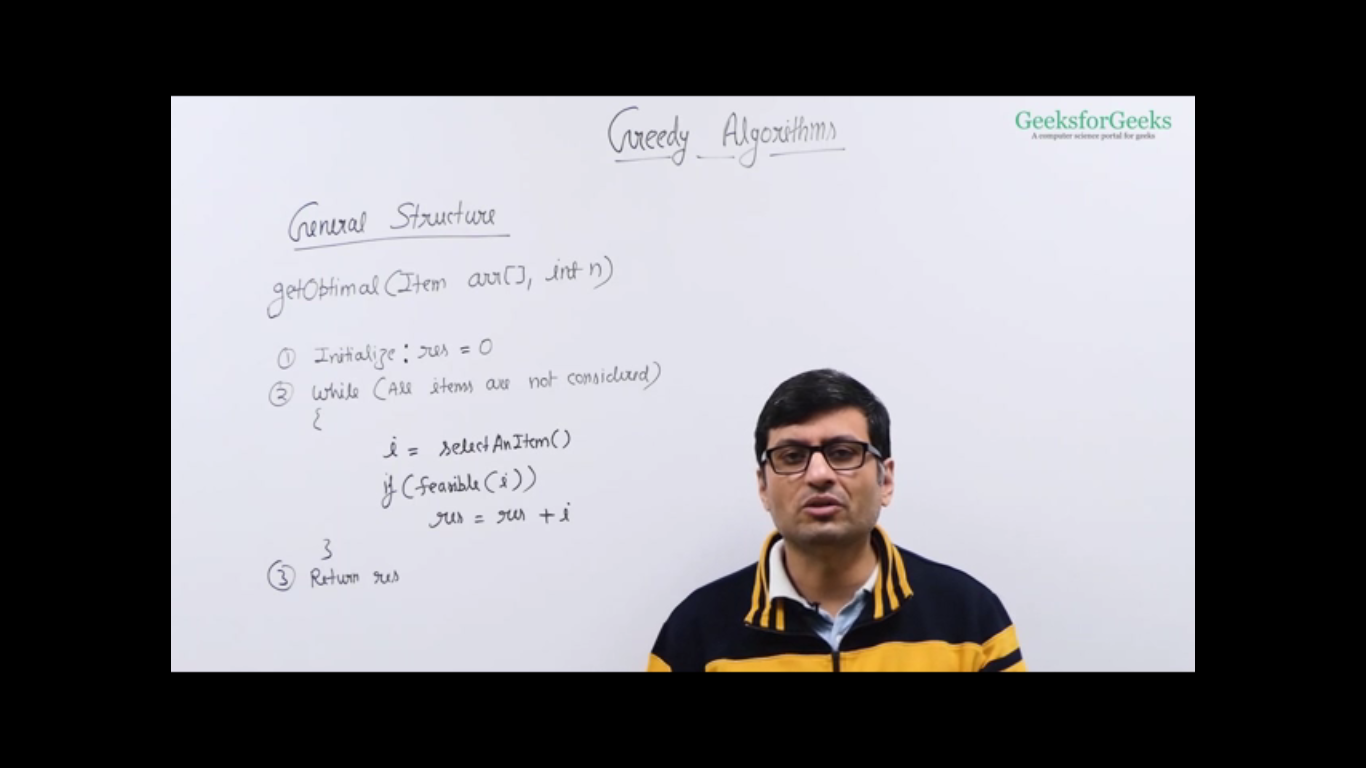 Greedy Algorithms
GeeksforGeeks
A computer science portal for geeks
General Structure
getOptimal(Item arr[], int n)
① Initialize: res = 0
② while (All items are not considered)
{
i = selectAnItem()
if (feasible(i))
res = res + i
}
③ Return res